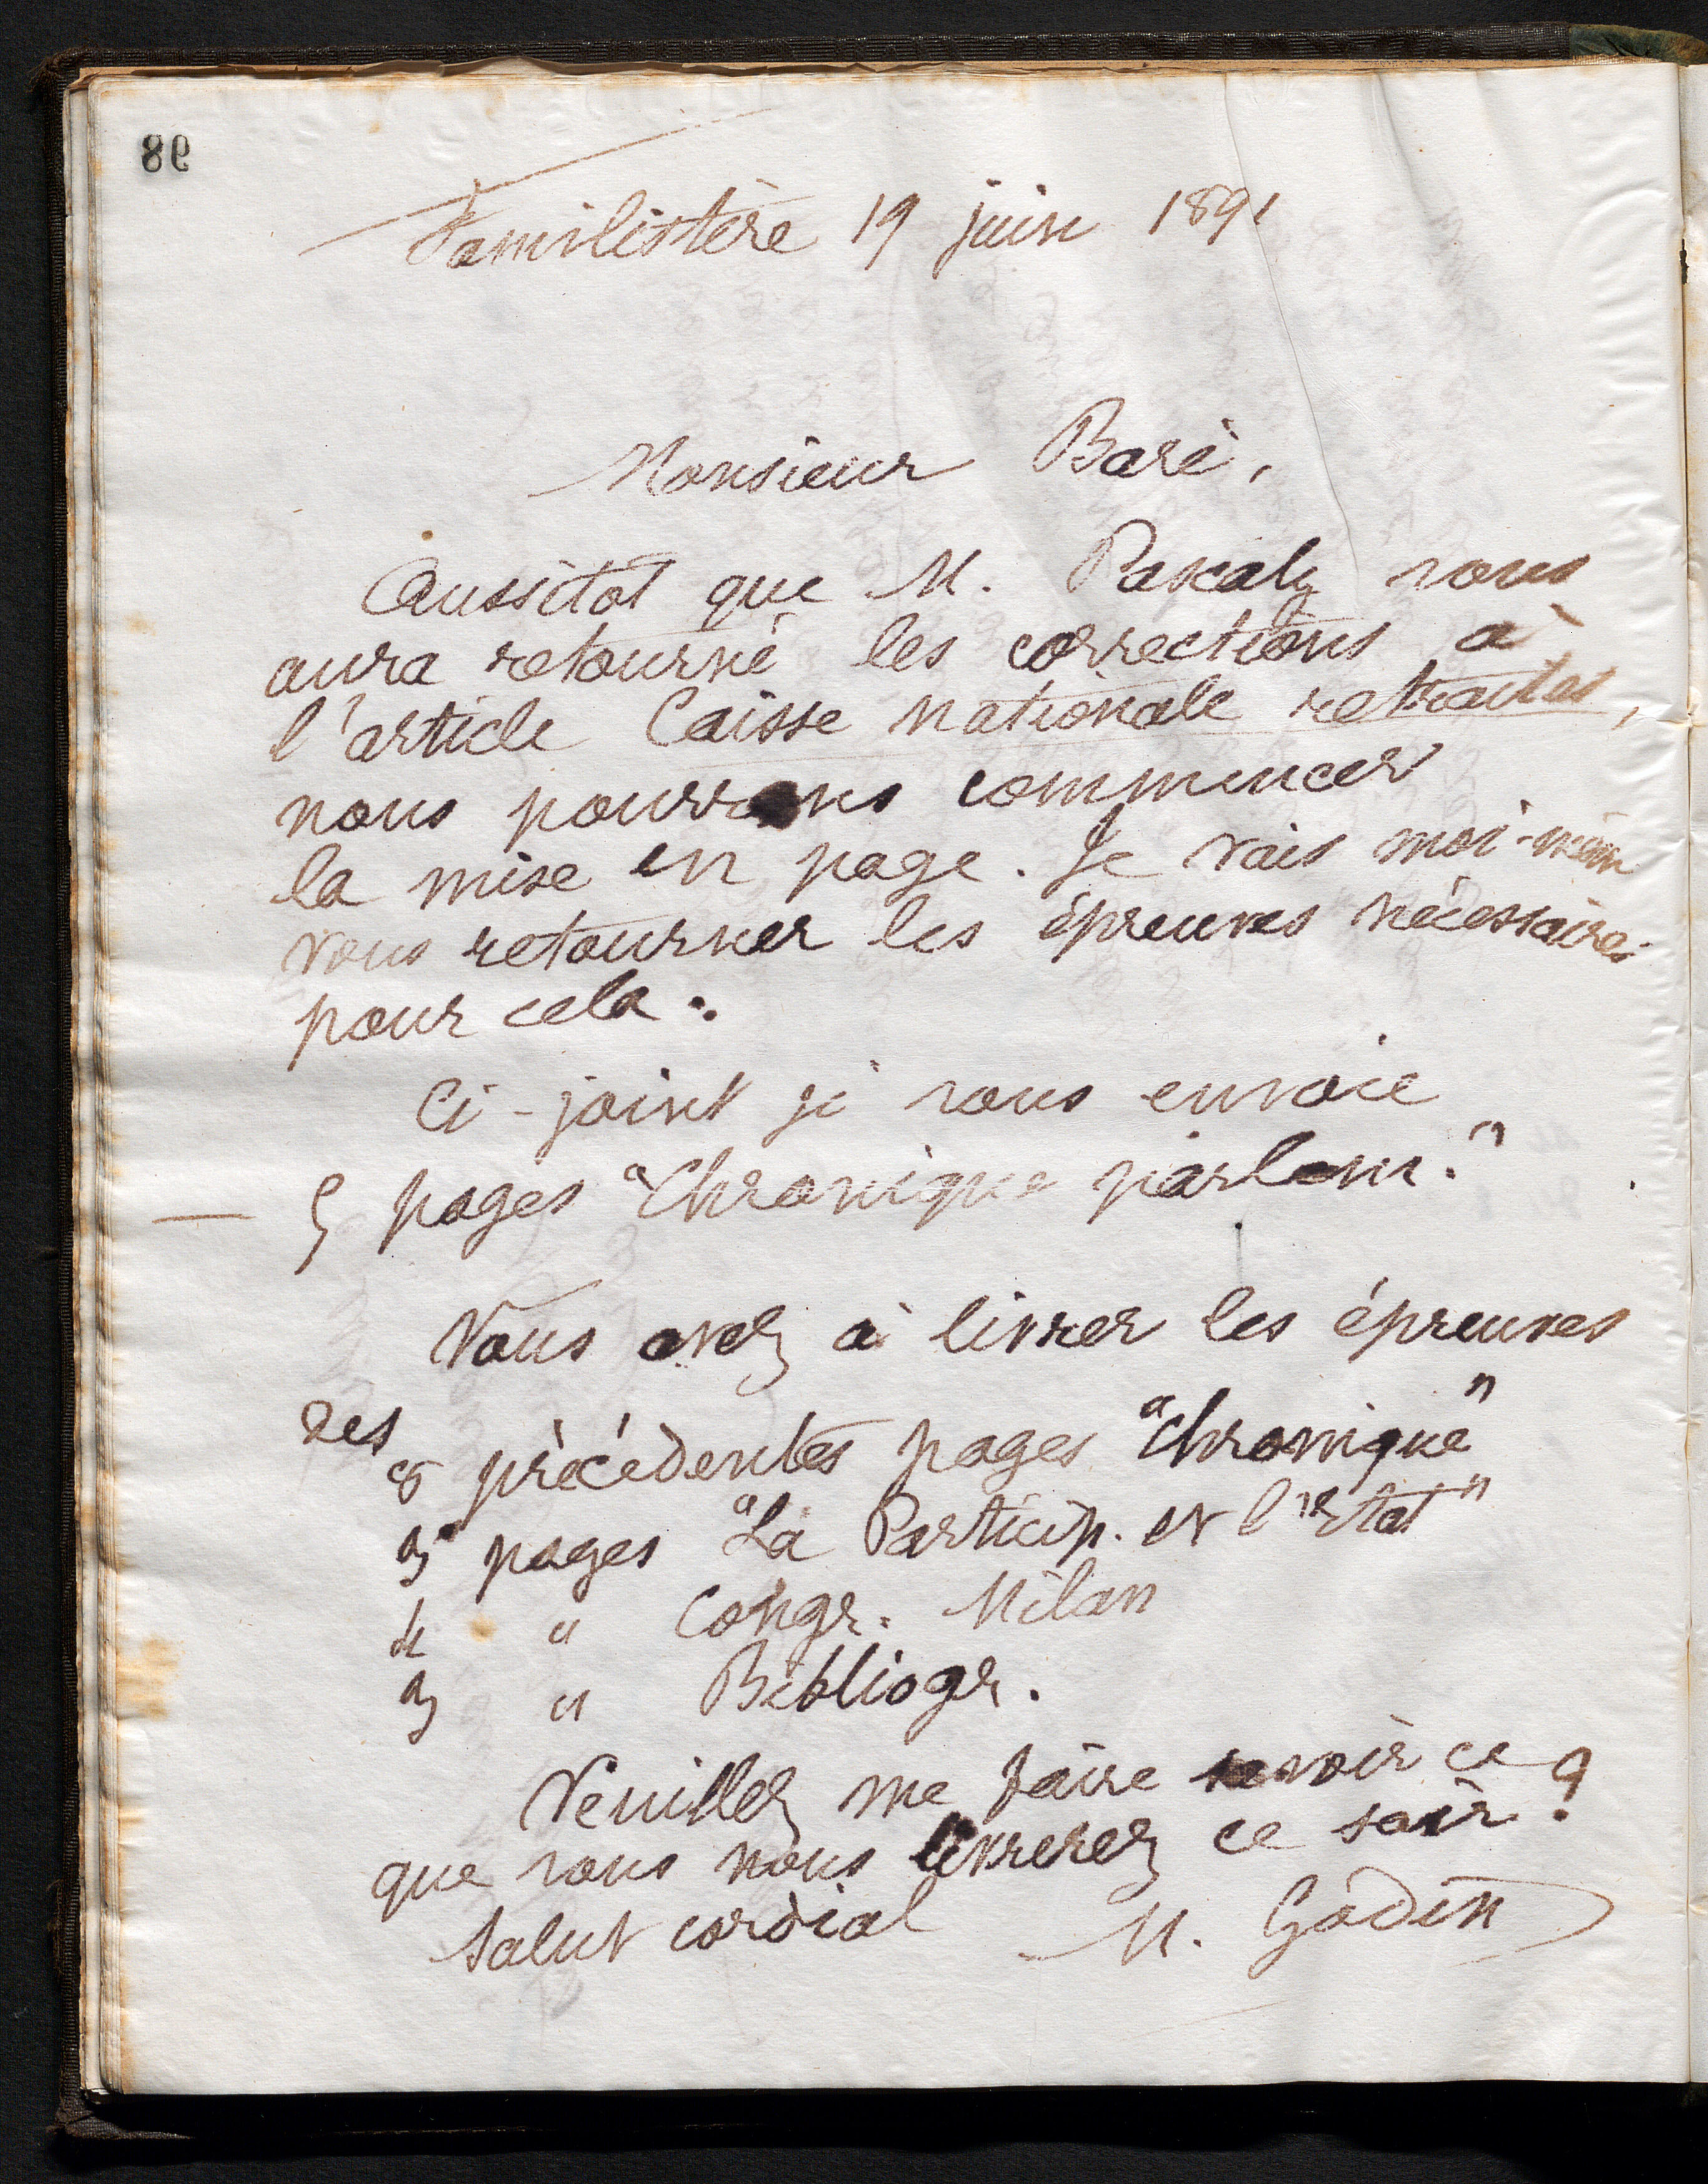 98
Familistère 19 juin 1891
Monsieur Baré,
Aussitôt que M. Pascaly nous
aura retourné les corrections à
l'article Caisse nationale retraites,
nous pourrons commencer
la mise en page. Je vais moi-même
vous retourner les épreuves nécessaires
pour cela.
Ci-joint je vous envoie
5 pages "Chronique parlem."
Vous avez à livrer les épreuves
des
8 précédentes pages "Chronique"
3 pages "La Particip. et l'Etat"
4 " Congr. Milan
3 " Bibliogr.
Veuillez me faire savoir ce
que vous nous livrerez ce soir ?
Salut cordial M. Godin